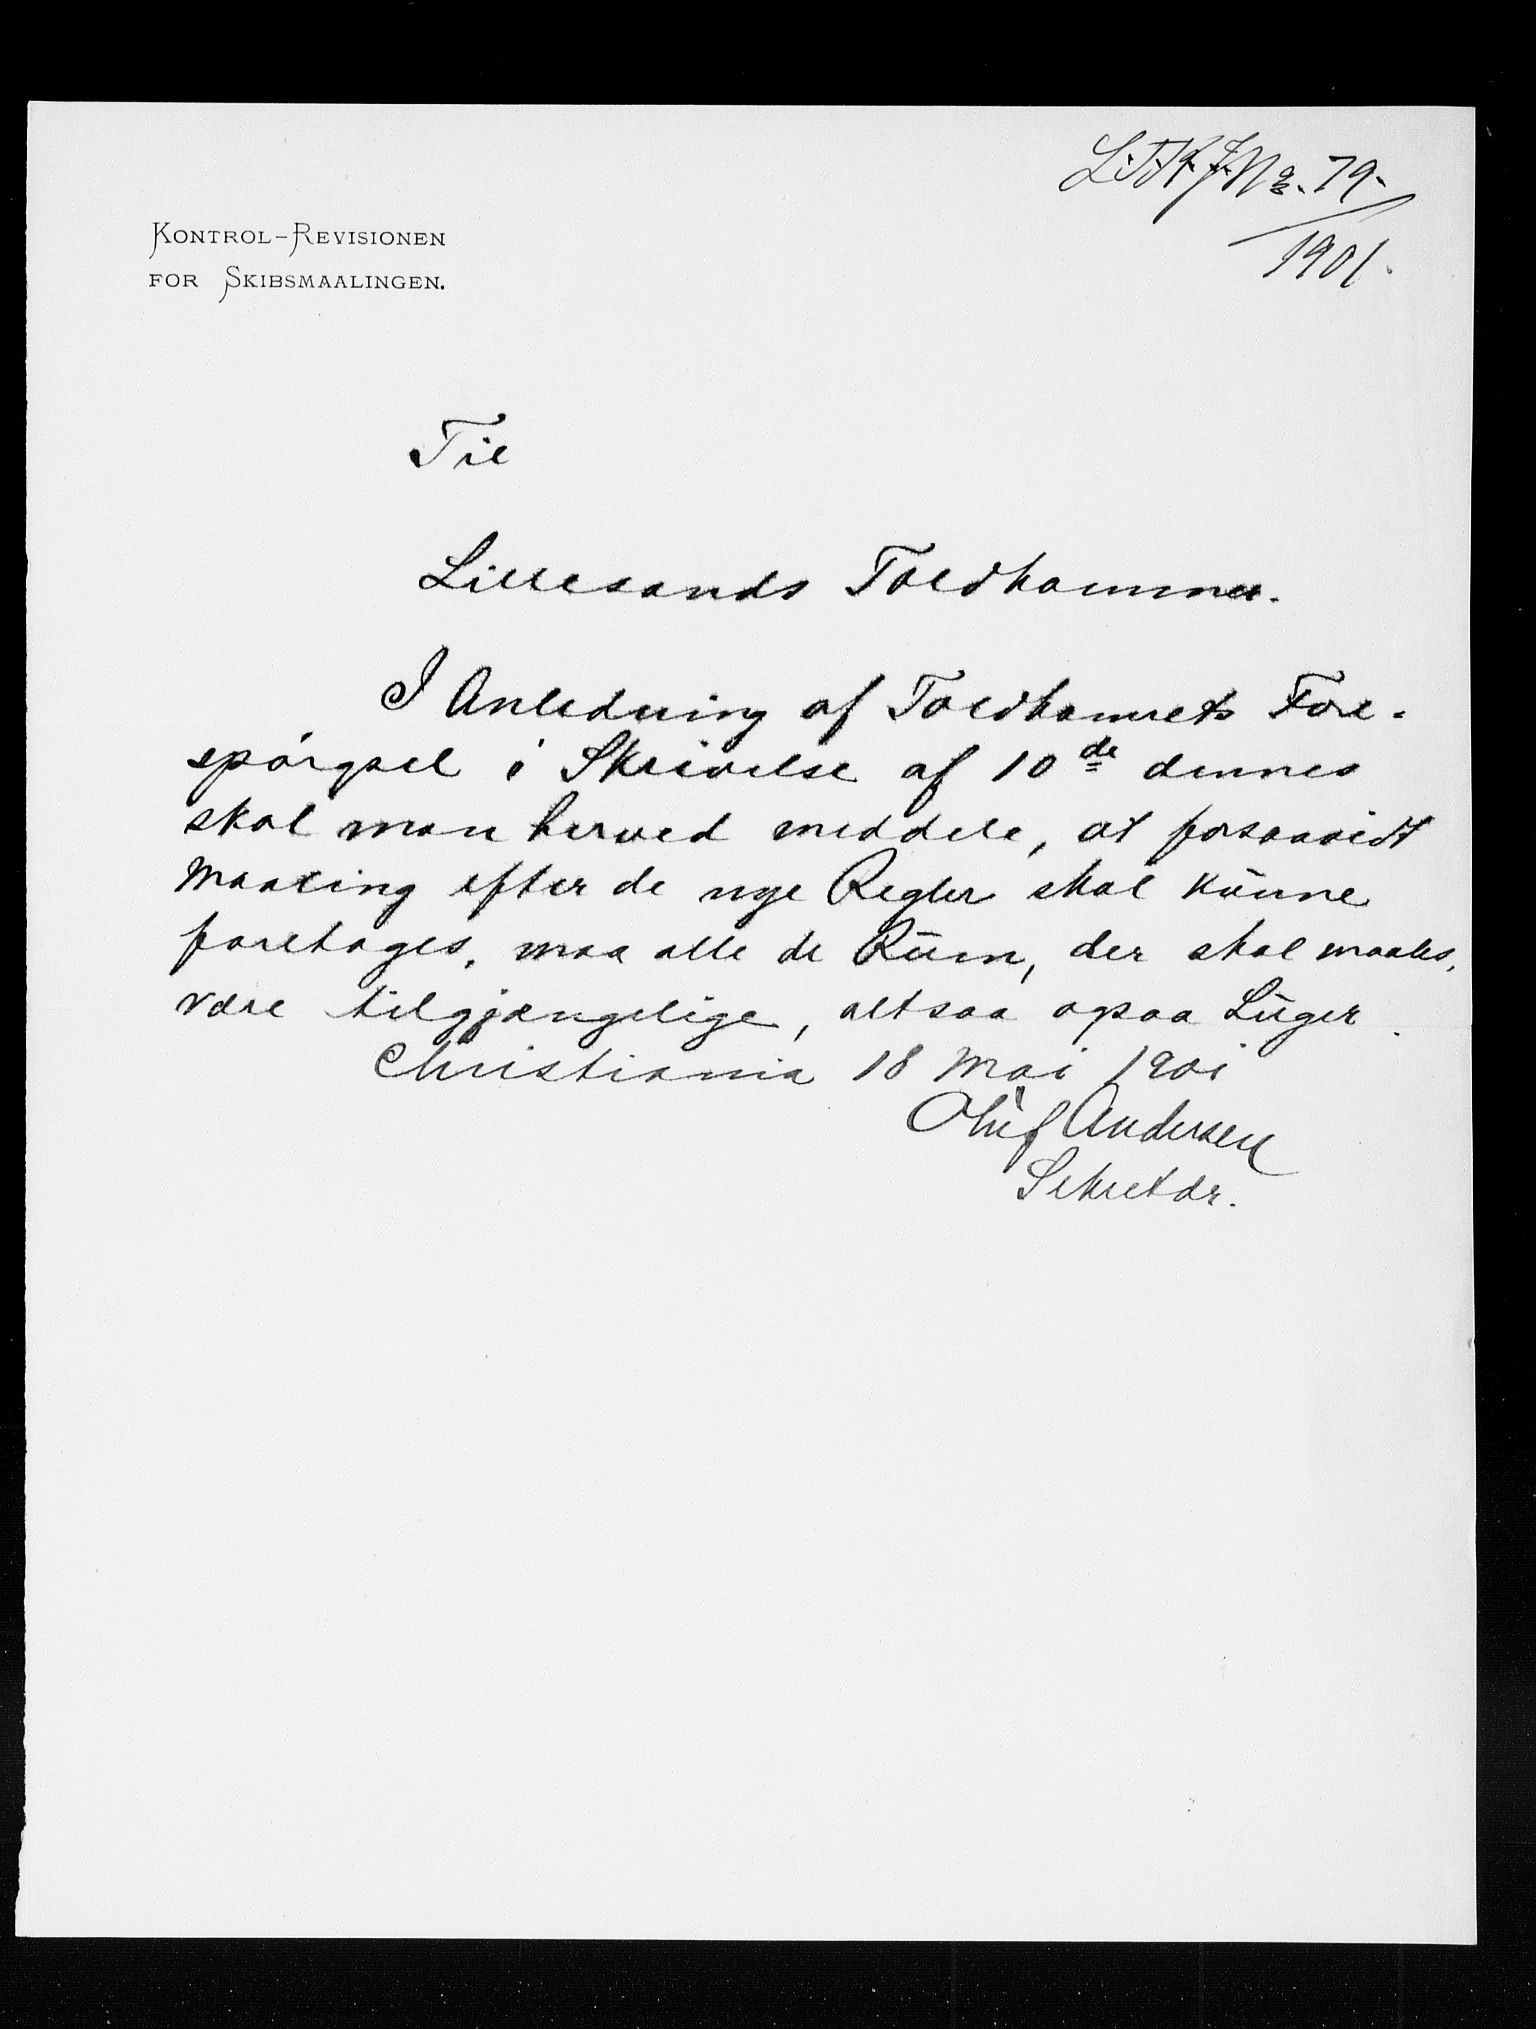 L.T.K.J.No. 79-
1901.
KONTROL-REVISIONEN
FOR SKIBSMAALINGEN.
Til
Lillesands Toldkammer.
I Anledning af Toldkamrets Fore-
spørgsel i Skrivelse af 10de dennes
skal man herved meddele, at forsaavidt
Maaling efter de nye Regler skal kunne
foretages, maa alle de Rum, der skal maales,
være tilgjængelige, altsaa ogsaa Luger.
Christiania 18 Mai 1901
Oluf Andersen
Sekretær.